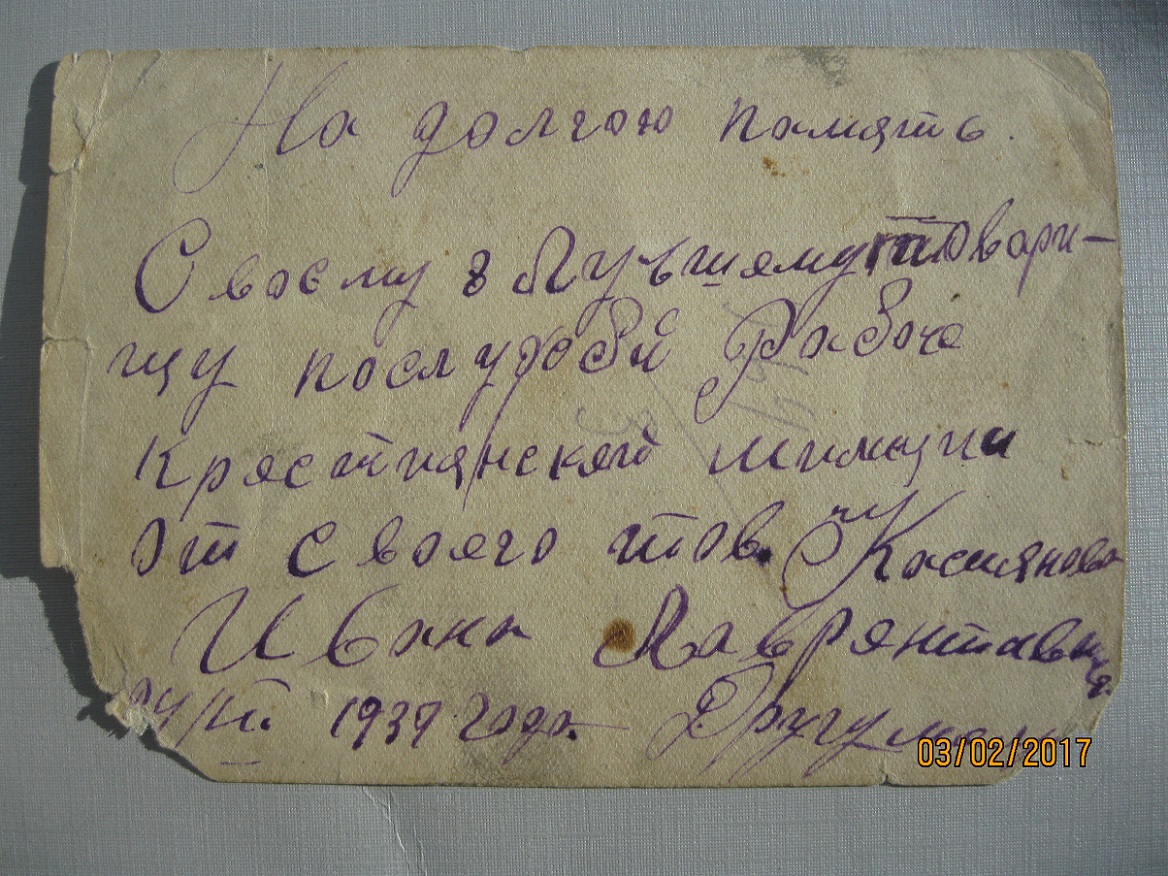 На долгою память.
Своему Лучшему товари-
щу послужбе Рабоче
Крестиянской милиции
от своего тов. Касиянова
Ивана Лаврентавича
1937 года Другу
03/02/2017